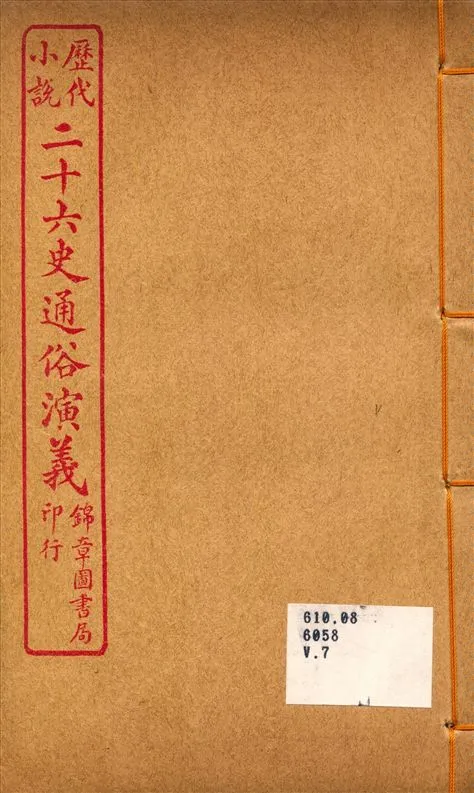 歷代
小說
二十六史通俗演義
錦章圖書局
印行
610.08
6058
V.7